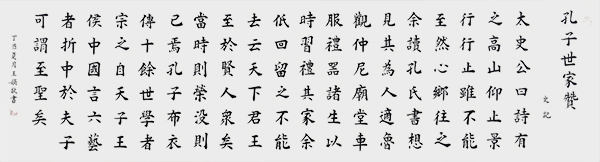 孔子世家贊
史記
太史公曰詩有
之高山仰止景
行行止雖不能
至然心鄉往之
余讀孔氏書想
見其為人適魯
觀仲尼廟堂車
服禮器諸生以
時習禮其家余
低回留之不能
去云天下君王
至於賢人衆矣
當時則榮沒則
已焉孔子布衣
傳十餘世學者
宗之自天子王
侯中國言六藝
者折中於夫子
可謂至聖矣
丁酉夏月王書